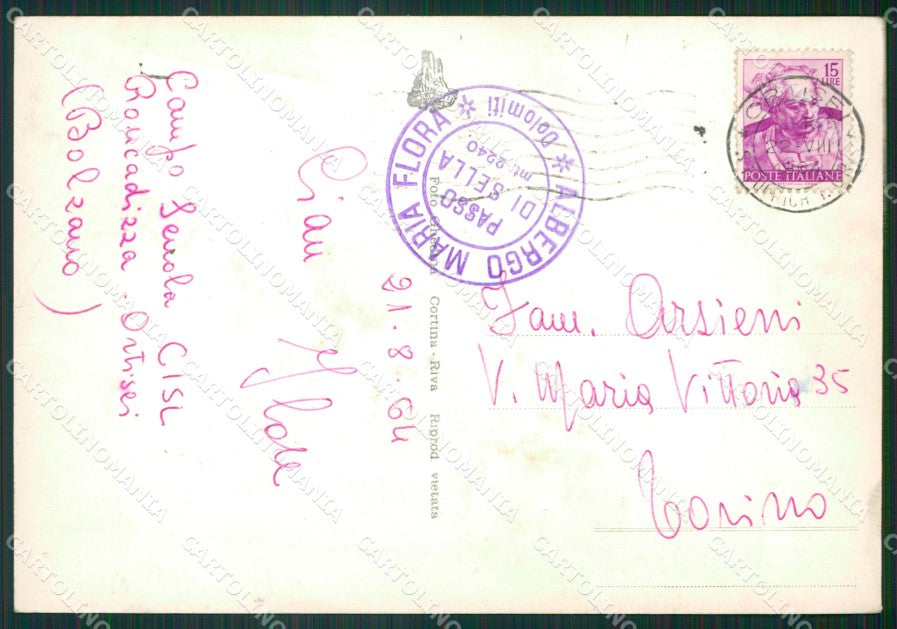 Campo Scuola CISL
Roncadizza - Ortisei
(Bolzano)
Ciau
21-8-64
Foto Ghedina Cortina - Riva Riprod vietata
* ALBERGO MARIA FLORA *
Dolomiti
PASSO
DI SELLA
mt. 2240
15
LIRE
POSTE ITALIANE
Fam. Arsieni
V. Maria Vittoria 35
Torino
CARTOLINOMANIA